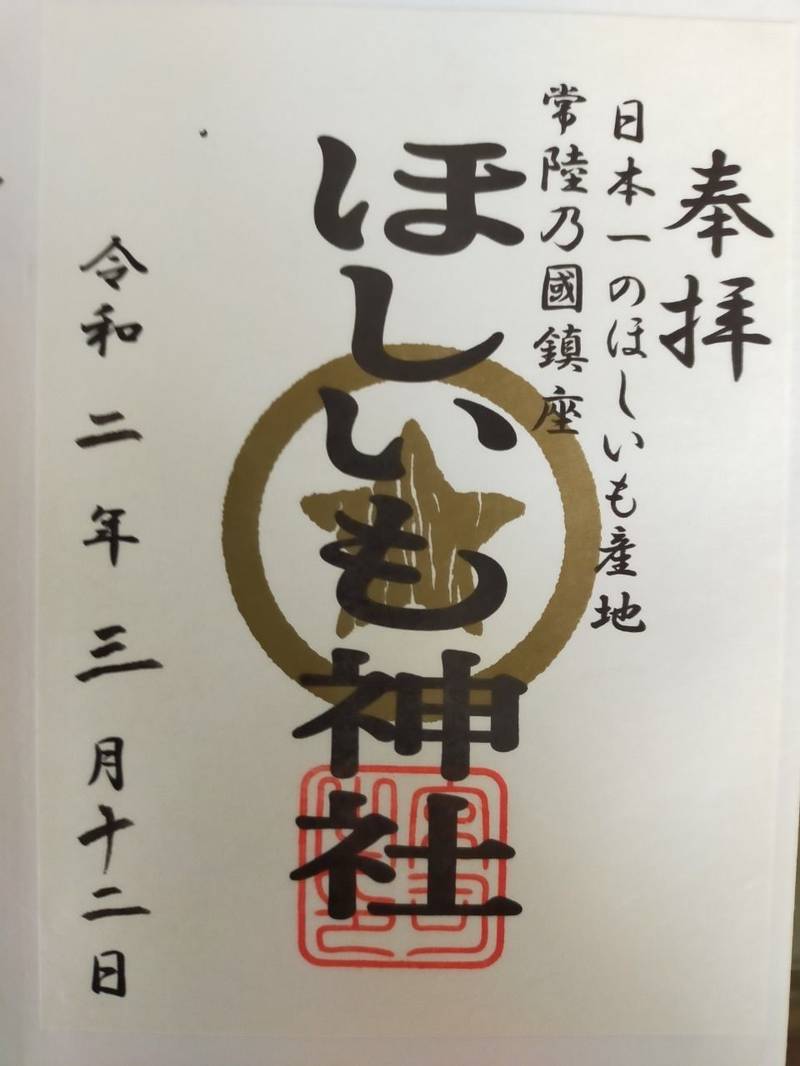 奉拝
日本一のほしいも産地
常陸乃國鎮座
ほしいも神社
令和二年三月十二日